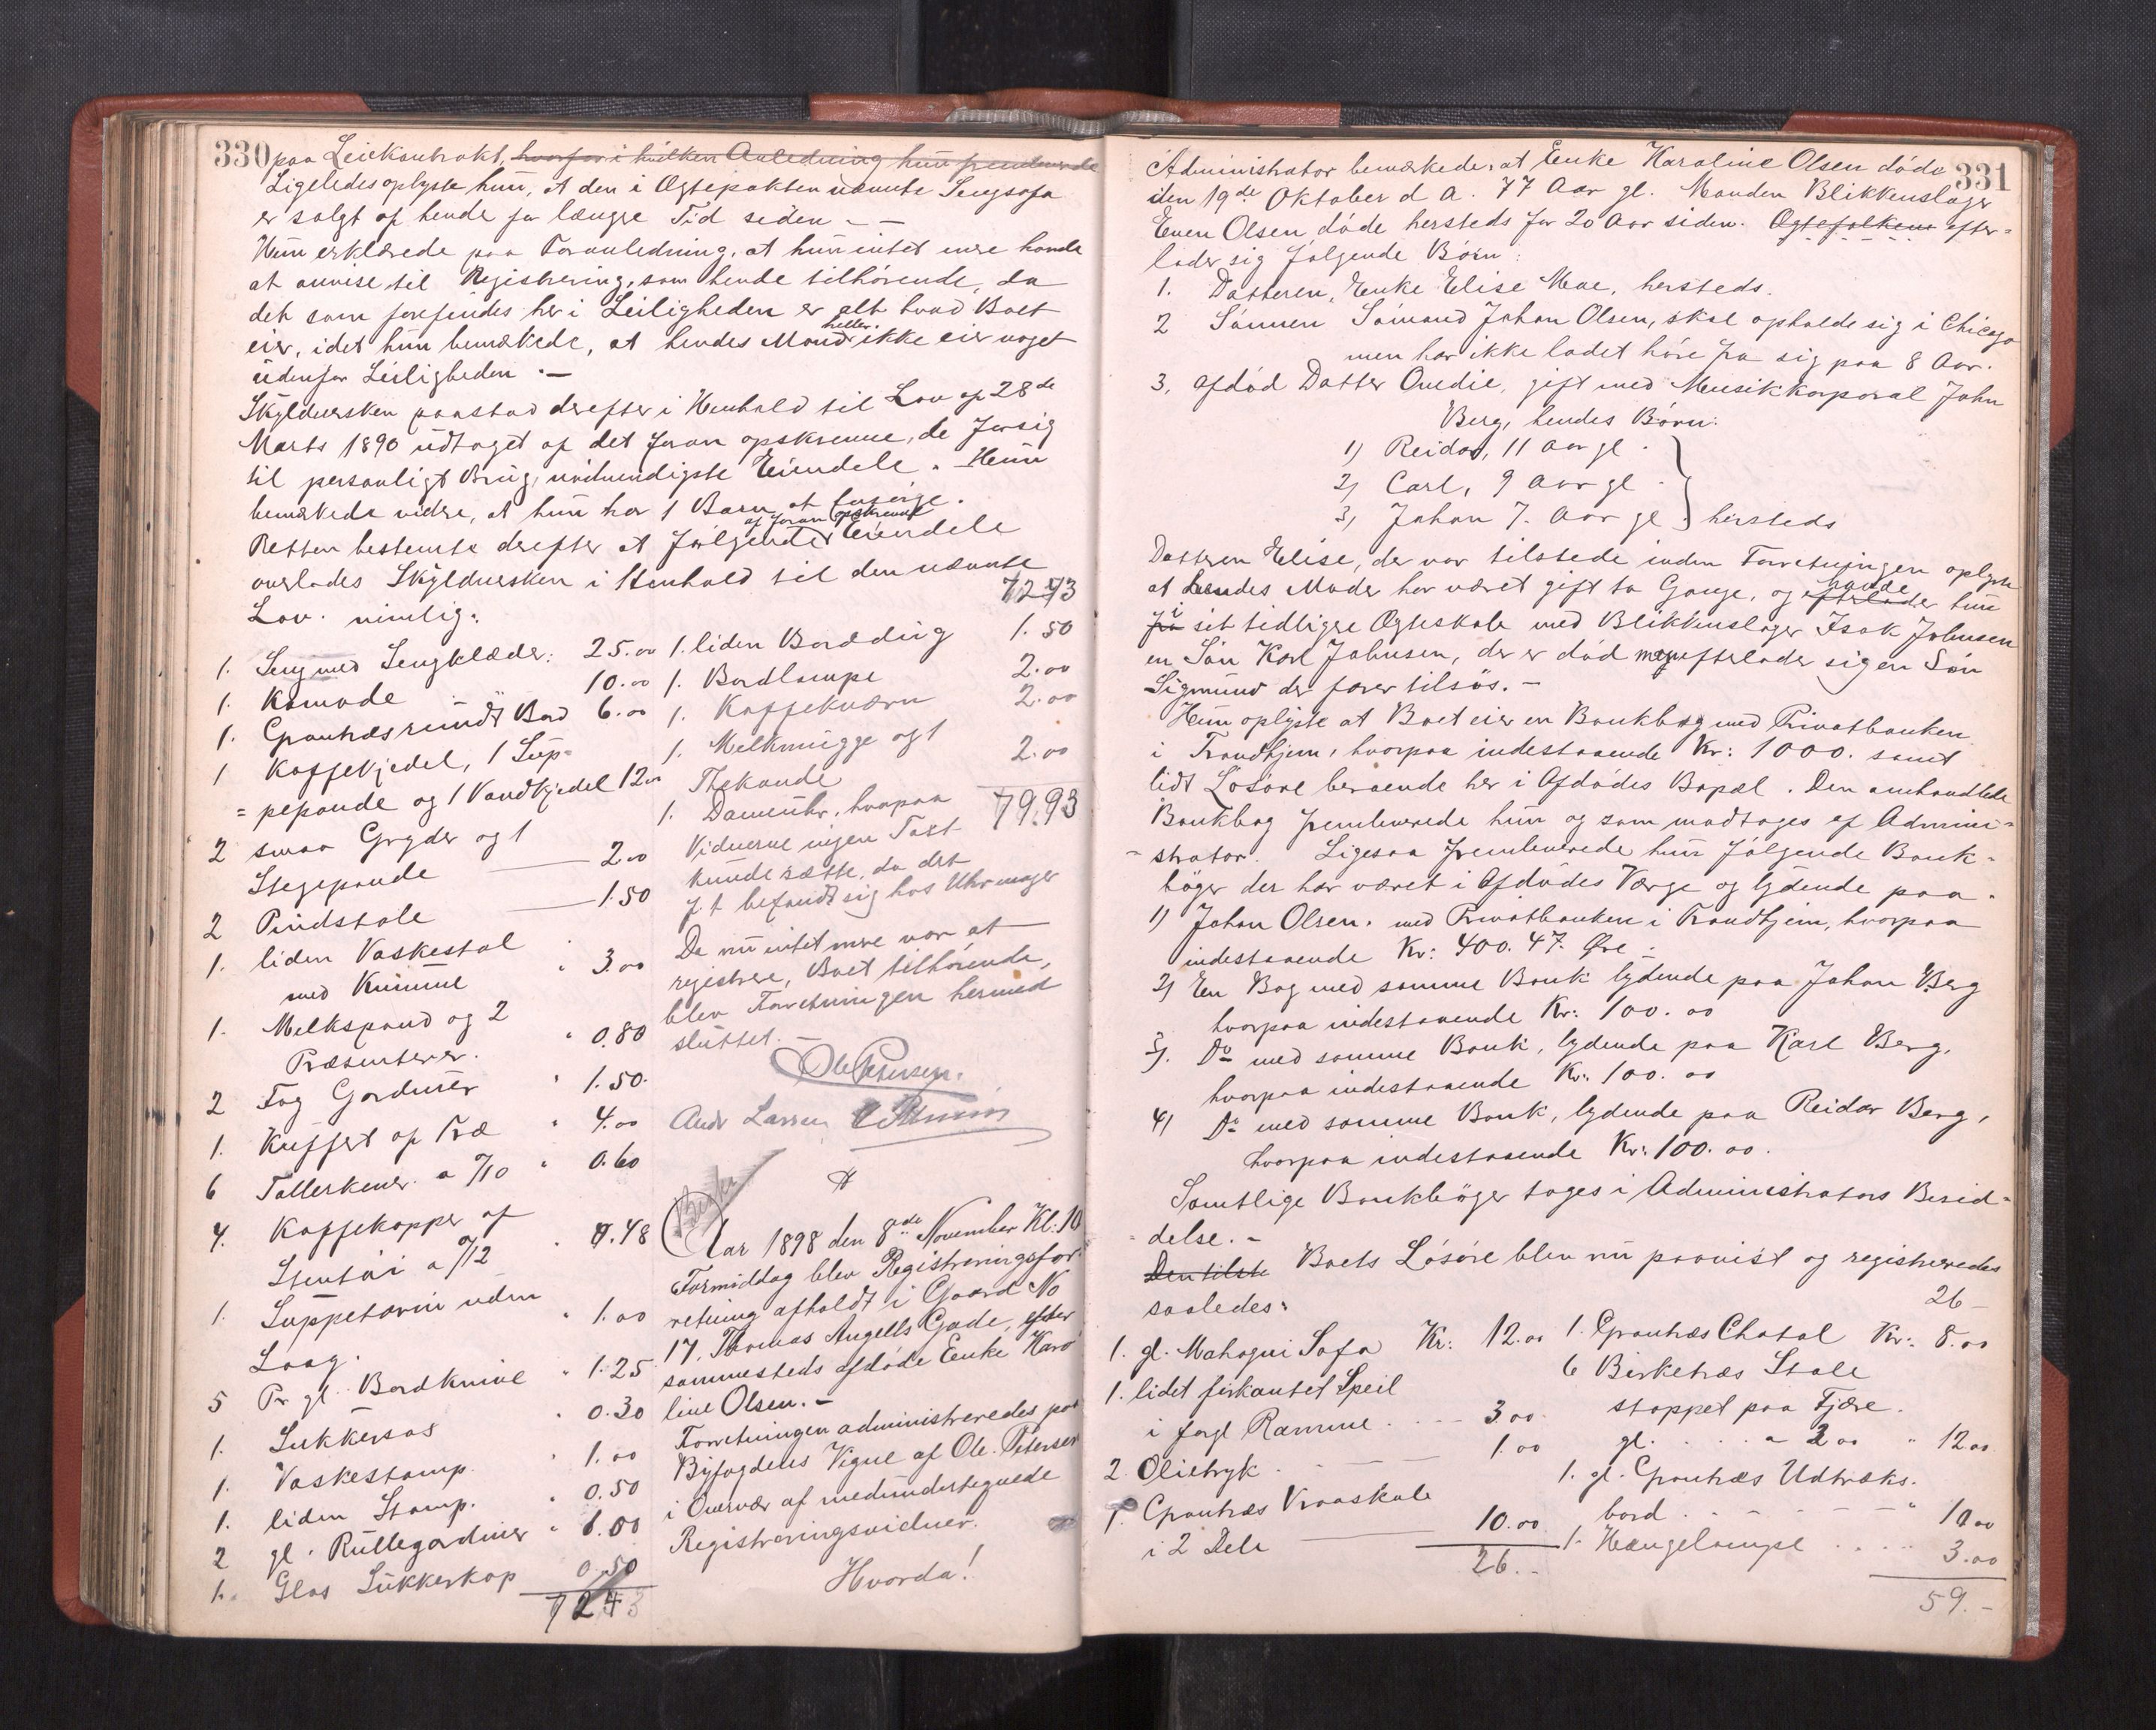 330
paa Leiekontrakt, hvorfor i hvilken Anledning hun fremlevede
Ligeledes oplyste hun, at den i Ægtepakten nævnte Sengsofa
er solgt af hende for længre Tid siden. —
Hun erklærede paa Foranledning, at hun intet mere havde
at anvise til Registrering, som hende tilhørende, da
det som forefindes her i Leiligheden er alt hvad Boet
eier, idet hun bemærkede, at hendes Mand heller ikke eier noget
udenfor Leiligheden. —
Skyldnersken paastod derefter i Henhold til Lov af 28de
Marts 1890 udtaget af det foran opskrevne, de for sig
til personligt Brug, nødvendigste Eiendele. Hun
bemærkede videre, at hun har 1 Barn at forsørge.
Retten bestemte derefter at følgende af foran opskrevne Eiendele
overlades Skyldnersken i Henhold til den nævnte
Lov. nemlig:
1. Seng med Sengklæder: 25.00
1. Komode 10.00
1. Grantræs rundt Bord 6.00
1 Kaffekjedel, 1 Sup-
= pepande og 1 Vandkjedel 12.00
2 smaa Gryder og 1
Stegepande — 2.00
2 Pindstole — 1.50
1. liden Vaskestol
med Kumme " 3.00
1. Melkspand og 2
Præsenterer. " 0.80
2 Fag Gardiner " 1.50.
1. Kuffert af Træ " 4.00
6 Tallerkener a 0/10 " 0.60
4. Kaffekopper af
Stentøi a 0/12 " 0.48
1. Suppeterrin uden
Laag. " 1.00
5 Pr gl. Bordknive " 1.25
1. Sukkersax " 0.30
1. Vaskestamp. " 1.00
1. liden Stamp. " 0.50
2 gl. Rullegardiner "
1. Glas Sukkerkop 0.50
72 73
1. liden Borddug 1.50
1. Bordlampe 2.00
1. Kaffekværn 2.00
1. Melkmugge og 1
Thekande 2.00
1. Dameuhr, hvorpaa 79.93
Vidnerne ingen Taxt
kunde sætte, da det
f. t befandt sig hos Uhrmager
Da nu intet mere var at
registrere, Boet tilhørende,
blev Forretningen hermed
sluttet. —
Ole Petersen.
Andr Larsen
Aar 1898 den 8de November Kl: 10
Formiddag blev Registreringsfor-
retning afholdt i Gaard No
17, Thomas Angells Gade, efter
sammesteds afdøde Enke Karo
line Olsen. —
Forretningen administreredes paa
Byfogdens Vegne af Ole Petersen
i Overvær af medundertegnede
Registreringsvidner.
Hvorda!
331
Administrator bemærkede, at Enke Karoline Olsen døde
den 19de Oktober d. A. 77 Aar gl. Manden Blikkenslager
Even Olsen døde hersteds for 20 Aar siden. Ægtefolkene efter=
lader sig følgende Børn:
1. Datteren, Enke Elise Moe, hersteds.
2 Sønnen Sømand Johan Olsen, skal opholde sig i Chicago
men har ikke ladet høre fra sig paa 8 Aar.
3, afdød Datter Ovedie, gift med Musikkorporal John
Berg, hendes Børn:
1) Reidar, 11 Aar gl.
2) Carl, 9 Aar gl.
3) Johan 7. Aar gl. } hersteds
Datteren Elise, der var tilstede under Forretningen oplyste
at hendes Moder har været gift to Gange, og efterlader havde hun
fra i sit tidligere Ægteskab med Blikkenslager Isak Johnsen
en Søn Karl Johnsen, der er død men efterlader sig en Søn
Sigmund der farer tilsøs. —
Hun oplyste at Boet eier en Bankbog med Privatbanken
i Trondhjem, hvorpaa indestaaende Kr: 1000. samt
lidt Løsøre beroende her i Afdødes Bopæl. Den omhandlede
Bankbog fremleverede hun og som modtages af Admini-
- strator. Ligesaa fremleverede hun følgende Bank-
bøger der har været i Afdødes Værge og lydende paa.
1) Johan Olsen. med Privatbanken i Trondhjem, hvorpaa
indestaaende Kr: 400. 47. Øre.
2) En Bog med samme Bank lydende paa Johan Berg
hvorpaa indestaaende Kr: 100.00
3). Do med samme Bank, lydende paa Karl Berg,
hvorpaa indestaaende Kr: 100.00
4) Do med samme Bank, lydende paa Reidar Berg,
hvorpaa indestaaende Kr: 100.00.
Samtlige Bankbøger tages i Administrators Besid-
- delse. —
Den tilste Boets Løsøre blev nu paavist og registreredes
saaledes:
1. gl. Mahogni Sofa Kr: 12.00
1. lidet firkantet Speil
i forgl Ramme. 3.00
2. Olietryk 1.00
1. Grantræs Kroaskab
i 2 Dele — 10.00
26. —
26 —
1. Grantræs Chatol Kr: 8.00
6 Birketræs Stole
stoppet paa Fjære.
gl. a 2.00 " 12.00
1. gl. Grantræs Udtræks.
bord " 10.00
1. Hængelampe 3.00
59. —